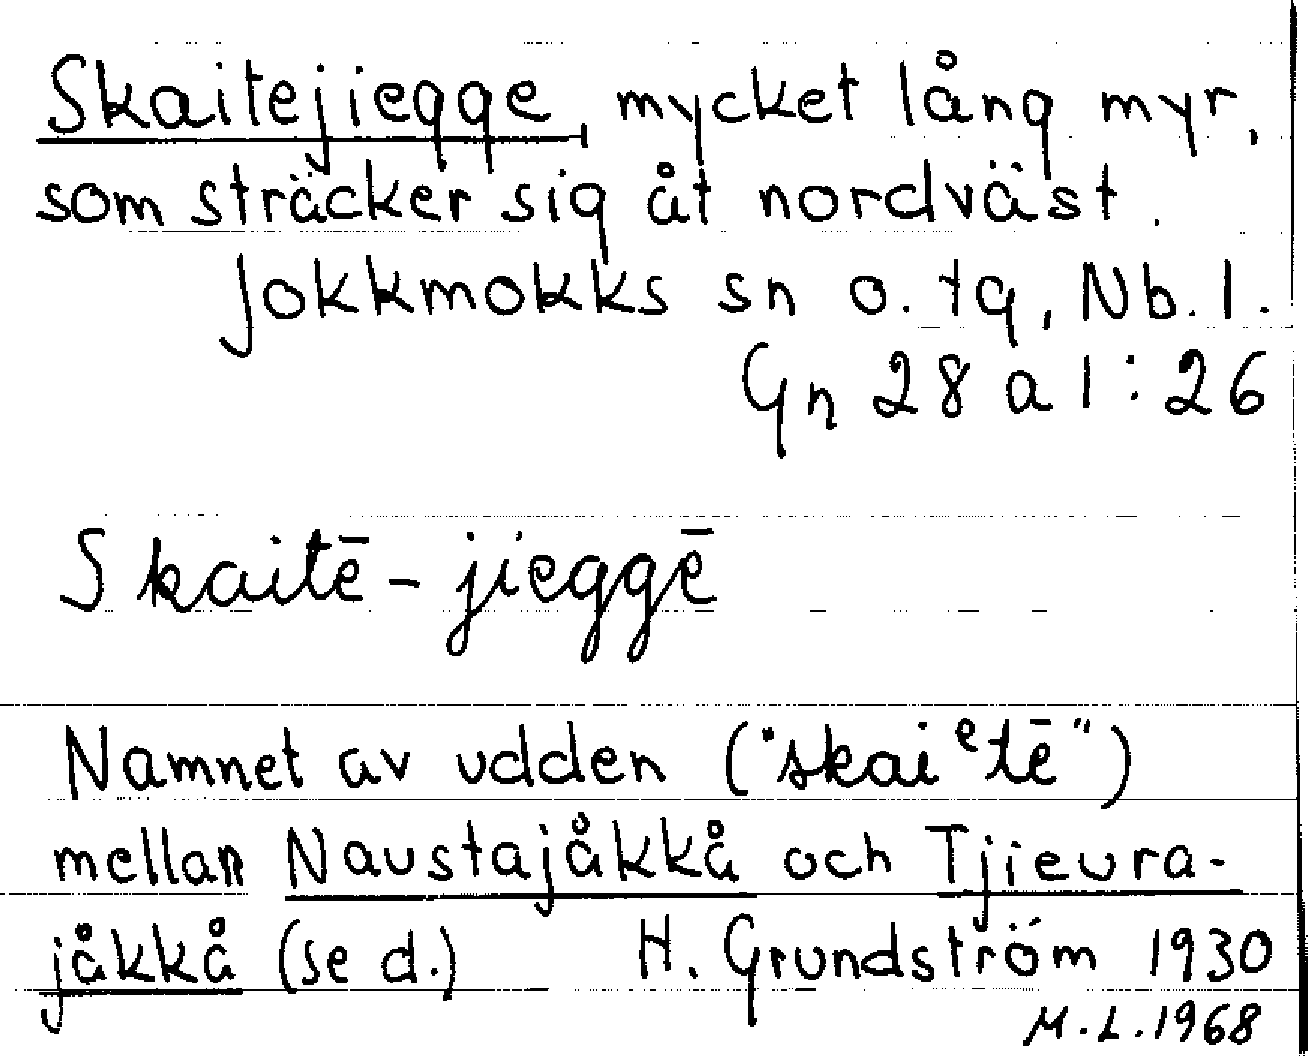 Skaitejiegge, mycket lång myr,
som sträcker sig åt nordväst.
Jokkmokks sn o. tg, Nb. l.
Gn 28 a 1:26
Skaitē-jieggē
Namnet av udden ("skaiᵉtē")
mellan Naustajåkkå och Tjieura-
jåkkå (se d.) H. Grundström 1930
M.L. 1968